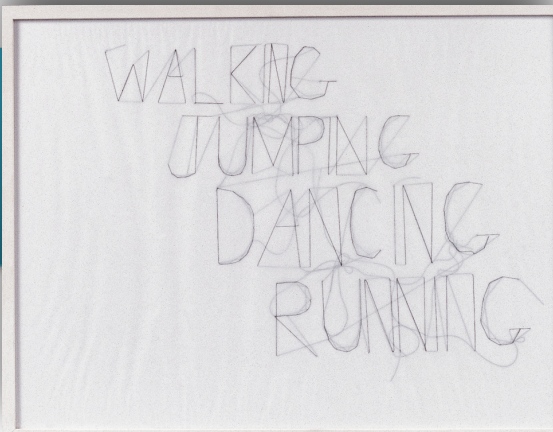 WALKING
JUMPING
DANCING
RUNNING